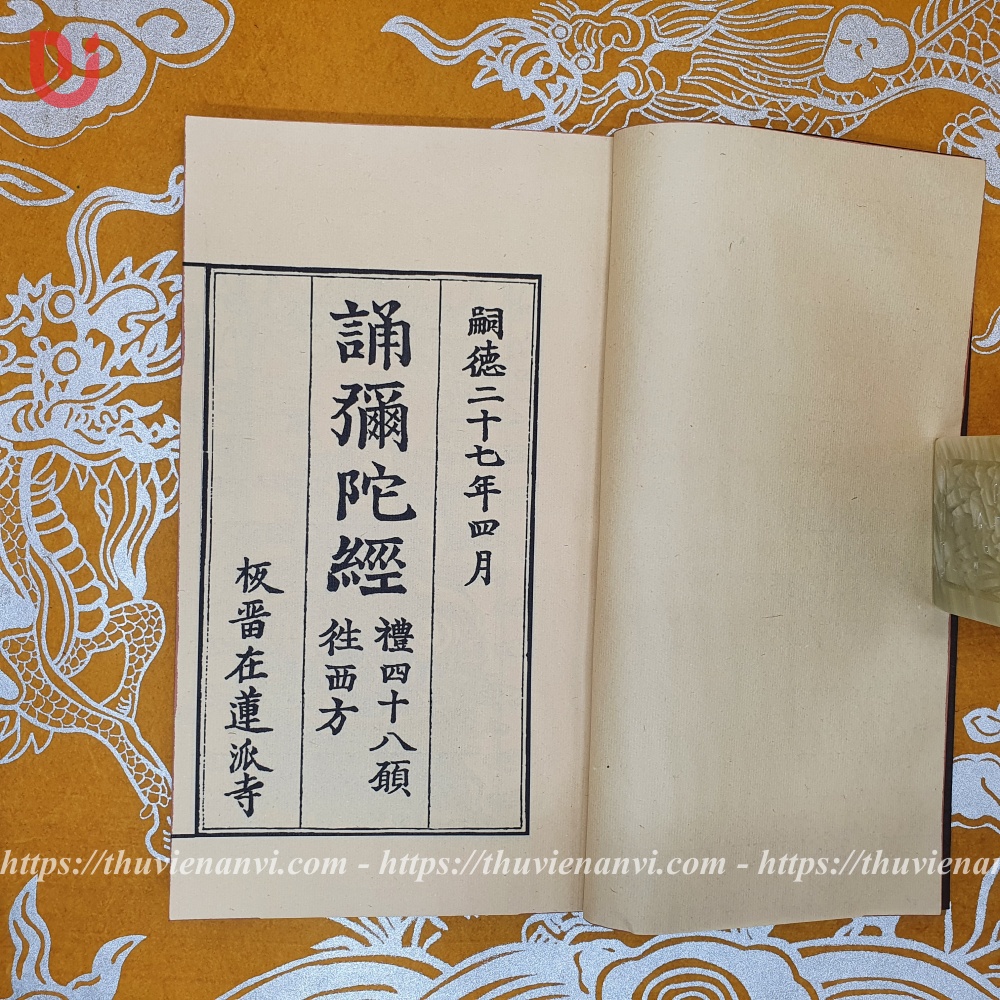 嗣德二十七年四月
誦彌陀經
禮四十八願
徃西方
板畱在蓮派寺
https://thuvienanvi.com - https://thuvienanvi.com - https://thuvienan